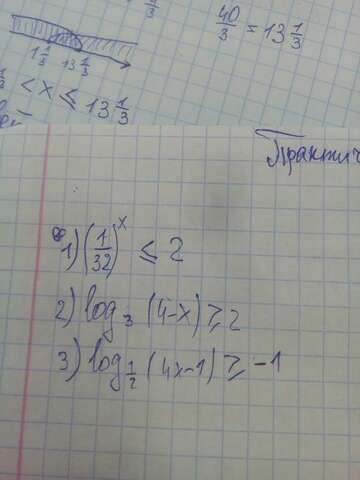 40/3 = 13 1/3
1/3
1 1/3 13 1/3
< x ≤ 13 1/3
Практич
1) (1/32)^x ≤ 2
2) log_3 (4-x) ≥ 2
3) log_1/2 (4x-1) ≥ -1